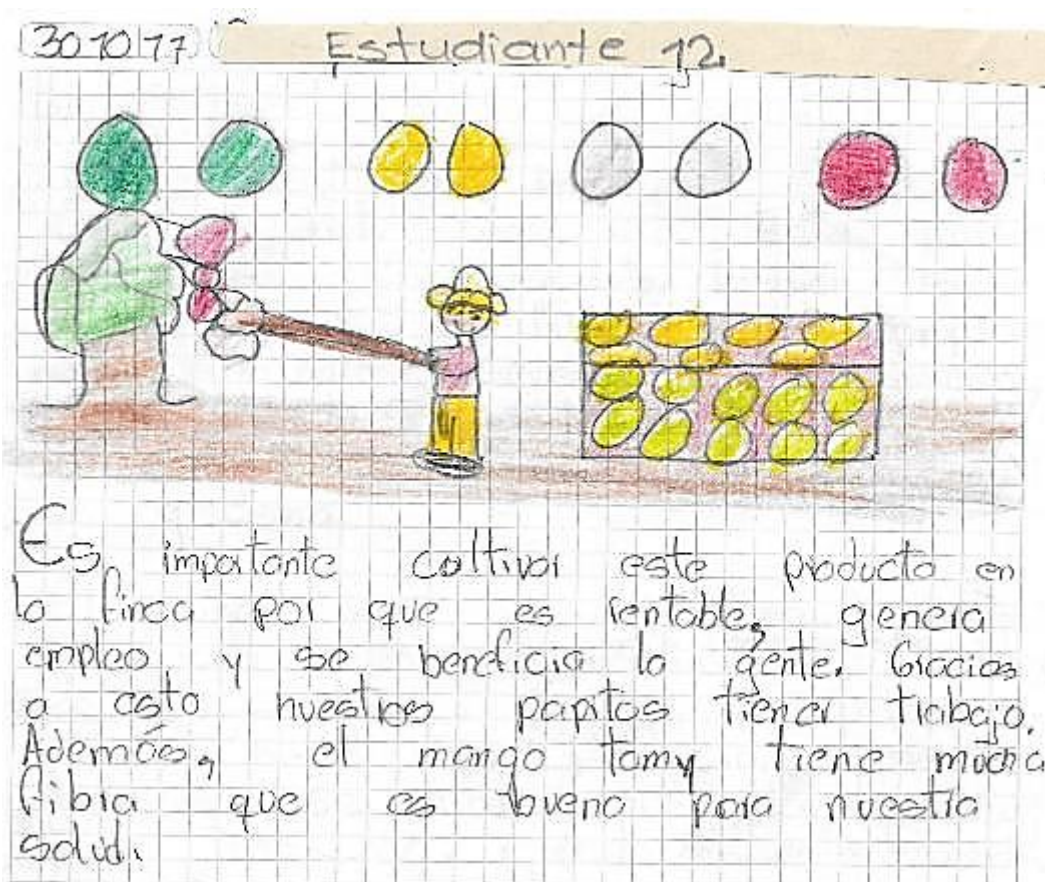 30 10 17
Estudiante 12.
Es importante coltivar este producto en
la finca por que es rentable, genera
empleo y se beneficia la gente. Gracias
a esto nuestros papitos tienen trabajo.
Además, el mango tomy tiene mucha
fibra que es bueno para nuestra
salud.